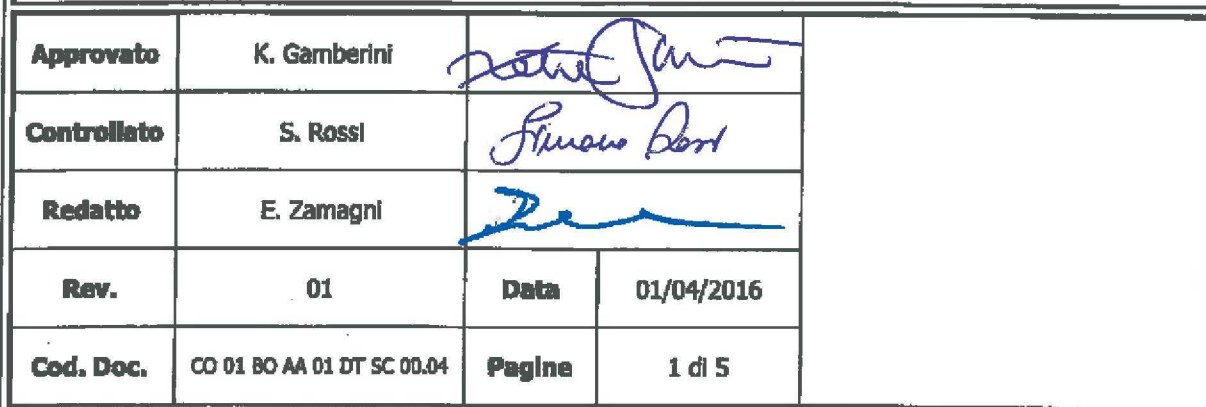 Approvato K. Gamberini
Controllato S. Rossi
Redatto E. Zamagni
Rev. 01 Data 01/04/2016
Cod. Doc. CO 01 BO AA 01 DT SC 00.04 Pagine 1 di 5